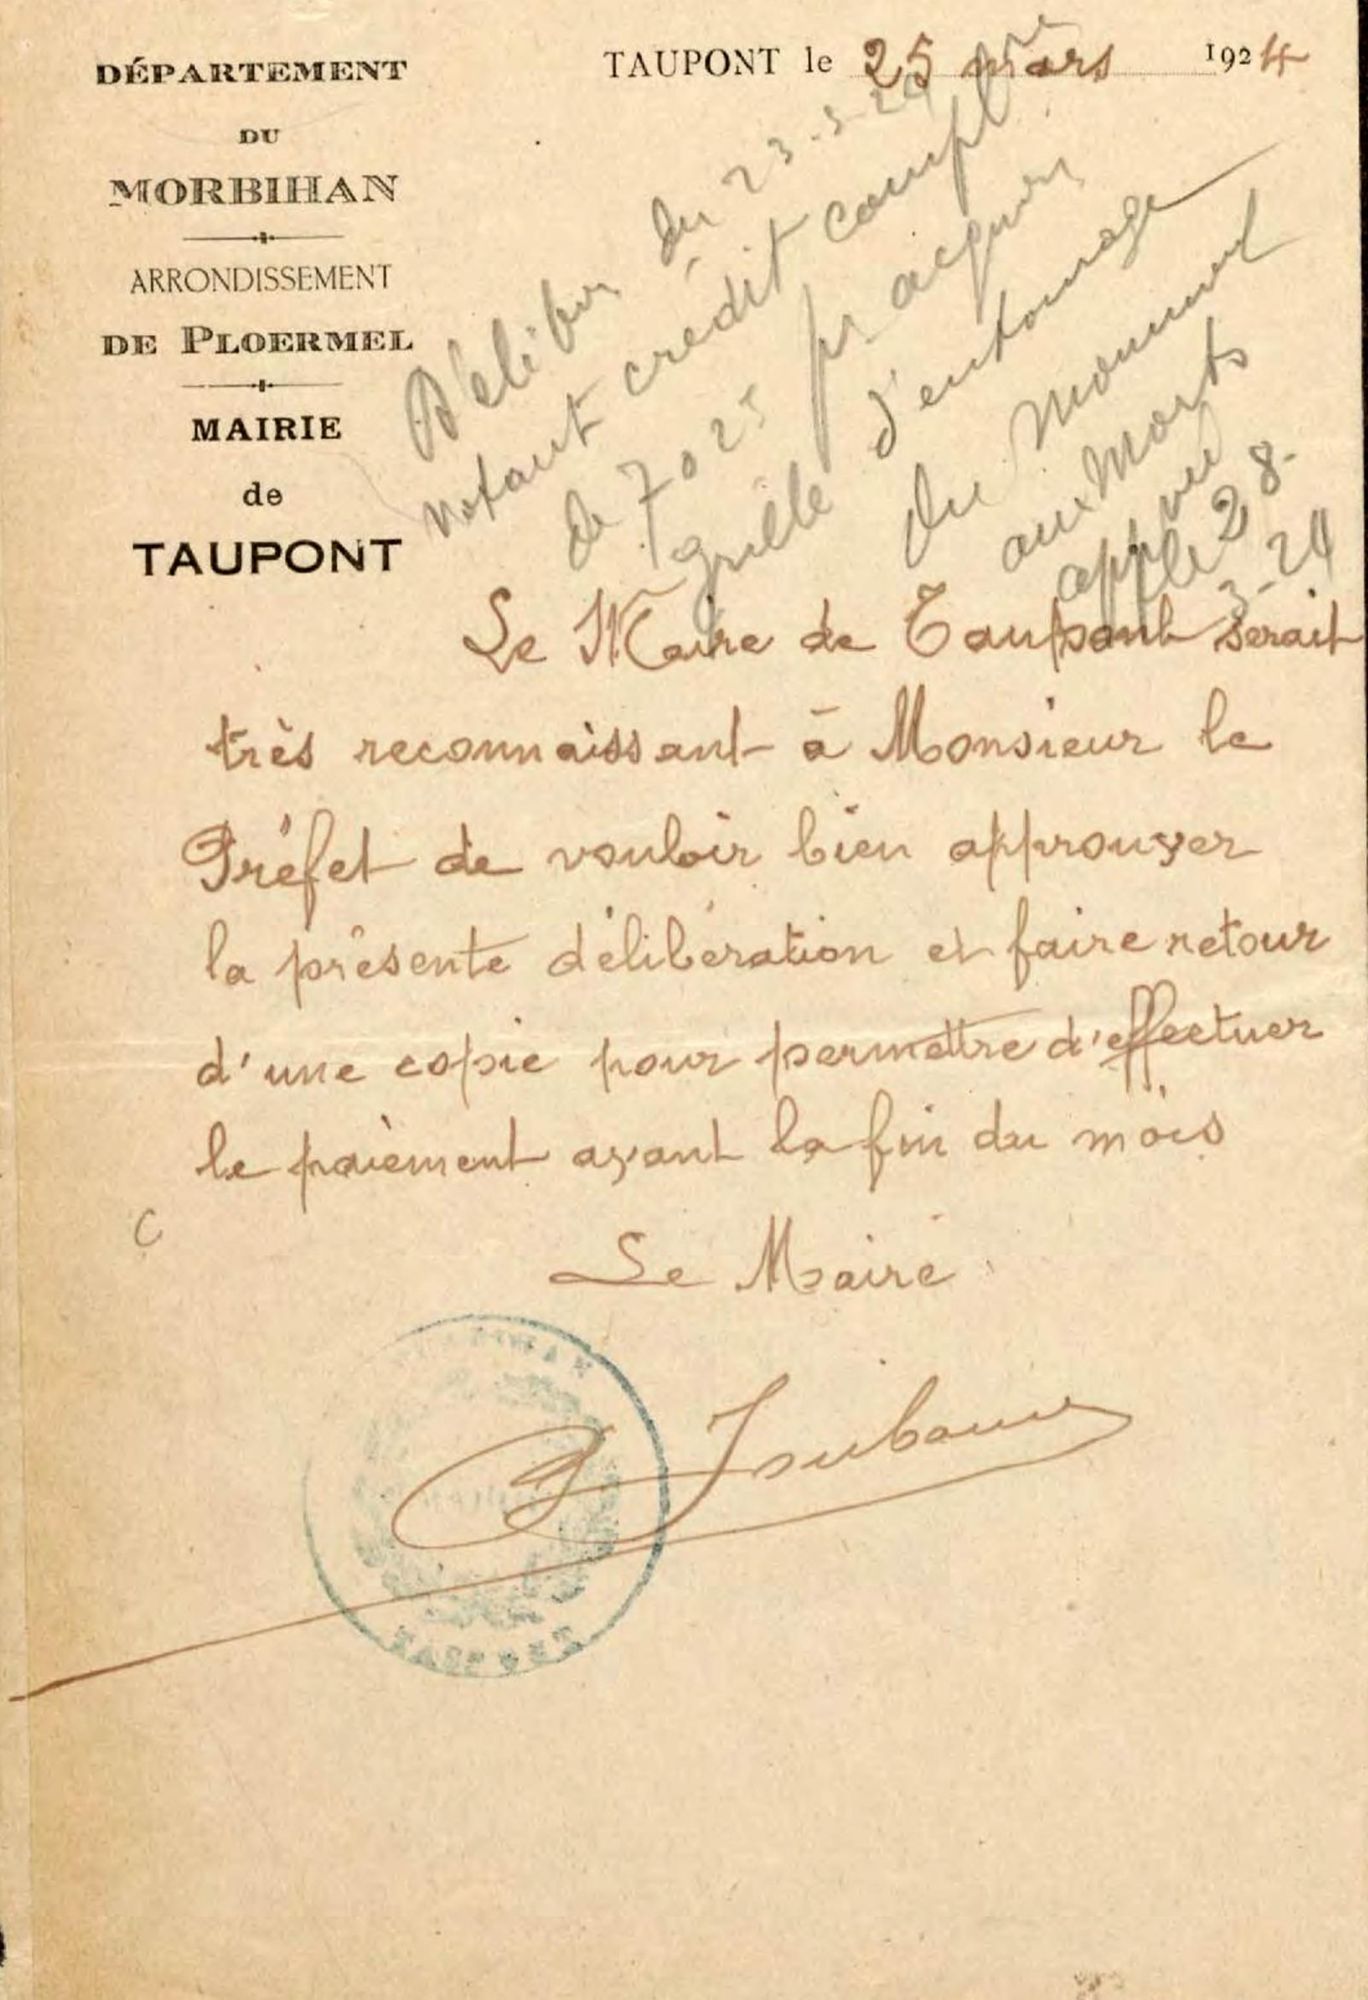 DÉPARTEMENT
DU
MORBIHAN
ARRONDISSEMENT
DE PLOERMEL
MAIRIE
de
TAUPONT
TAUPONT le 25 mars 1924
Délibon du 23-3-24
votant crédit complre
de 7025 pr acquon
grille d'entourage
du Monument
aux Morts
approuvé
le 28-
3-24
Le Maire de Taupont serait
très reconnaissant à Monsieur le
Préfet de vouloir bien approuver
la présente délibération et faire retour
d'une copie pour permettre d'effectuer
le paiement avant la fin du mois
C
Le Maire
TAUPONT